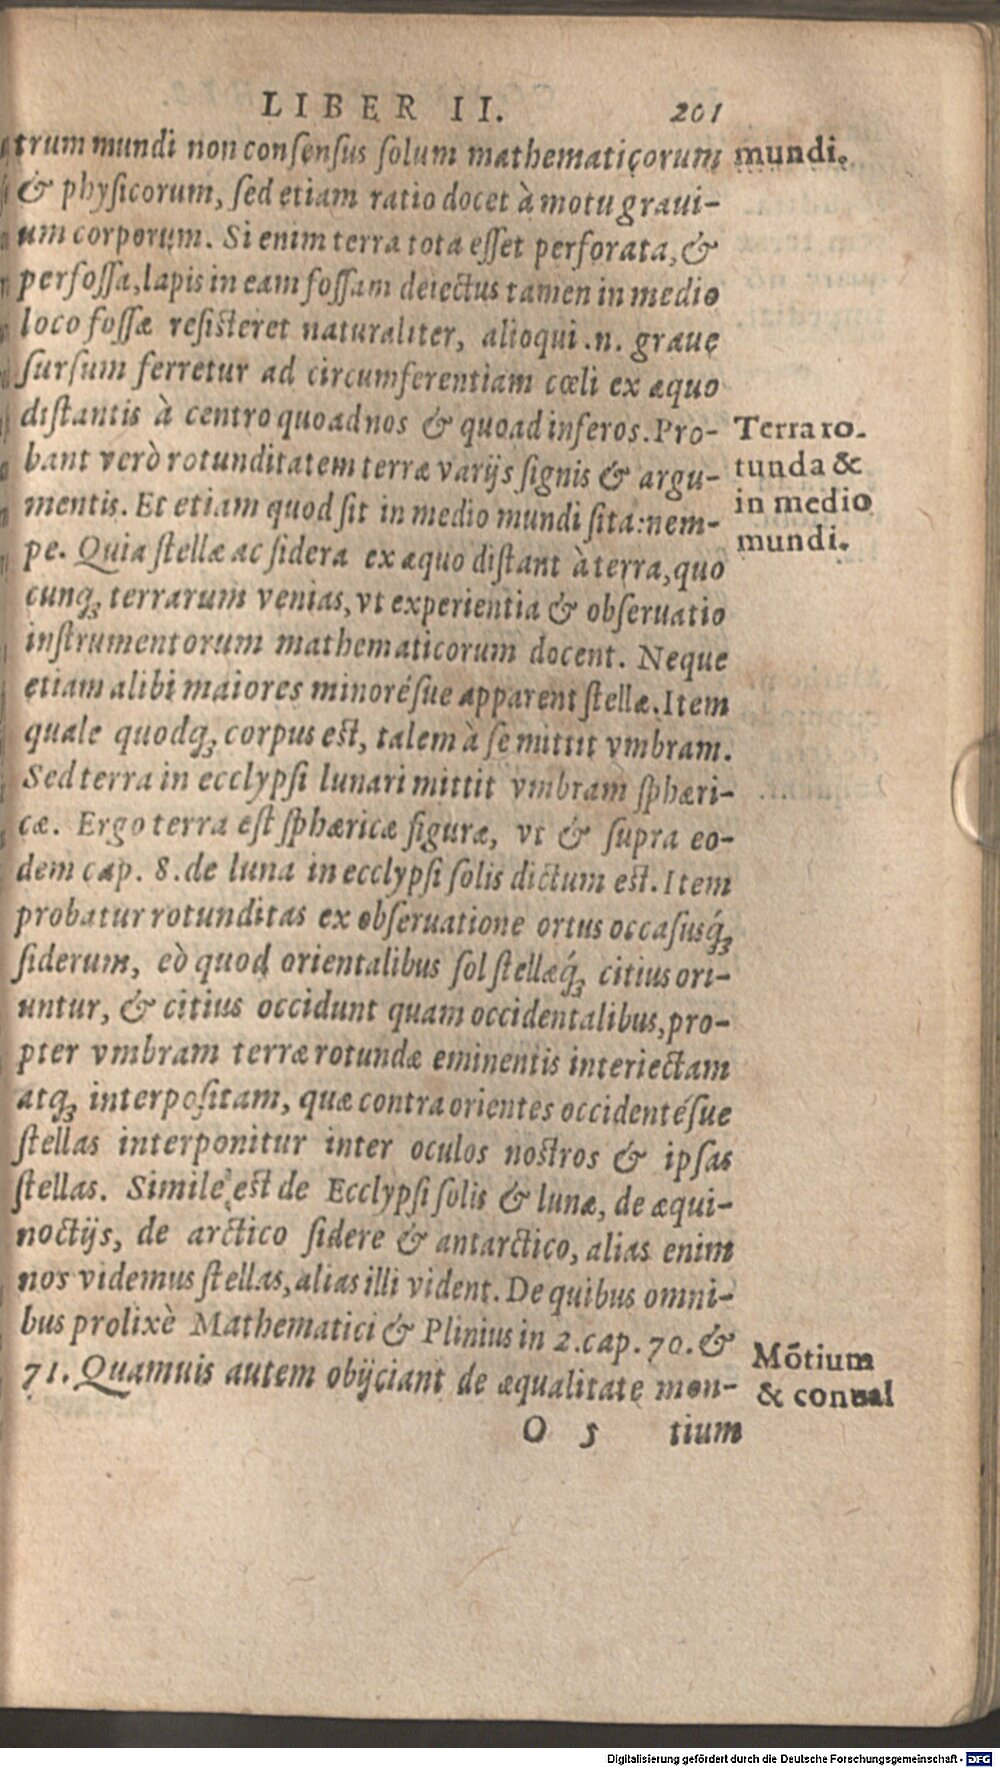 LIBER II. 201
trum mundi non consensus solum mathematicorum
& physicorum, sed etiam ratio docet à motu graui-
um corporum. Si enim terra tota esset perforata, &
perfossa, lapis in eam fossam deiectus tamen in medio
loco fossæ resisteret naturaliter, alioqui .n. graue
sursum ferretur ad circumferentiam cœli ex æquo
distantis à centro quoad nos & quoad inferos. Pro-
bant verò rotunditatem terræ varijs signis & argu-
mentis. Et etiam quod sit in medio mundi sita: nem-
pe. Quia stellæ ac sidera ex æquo distant à terra, quo
cunqꝫ terrarum venias, vt experientia & obseruatio
instrumentorum mathematicorum docent. Neque
etiam alibi maiores minorésue apparent stellæ. Item
quale quodqꝫ corpus est, talem à se mittit vmbram.
Sed terra in ecclypsi lunari mittit vmbram sphæri-
cæ. Ergo terra est sphæricæ figuræ, vt & supra eo-
dem cap. 8. de luna in ecclypsi solis dictum est. Item
probatur rotunditas ex obseruatione ortus occasusq́ꝫ
siderum, eò quod orientalibus sol stellæq́ꝫ citius ori-
untur, & citius occidunt quam occidentalibus, pro-
pter vmbram terræ rotundæ eminentis interiectam
atqꝫ interpositam, quæ contra orientes occidentésue
stellas interponitur inter oculos nostros & ipsas
stellas. Simile est de Ecclypsi solis & lunæ, de æqui-
noctijs, de arctico sidere & antarctico, alias enim
nos videmus stellas, alias illi vident. De quibus omni-
bus prolixè Mathematici & Plinius in 2. cap. 70. &
71. Quamuis autem obijciant de æqualitate mon-
O 5 tium
mundi.
Terra ro-
tunda &
in medio
mundi.
Mõtium
& conual
Digitalisierung gefördert durch die Deutsche Forschungsgemeinschaft - DFG